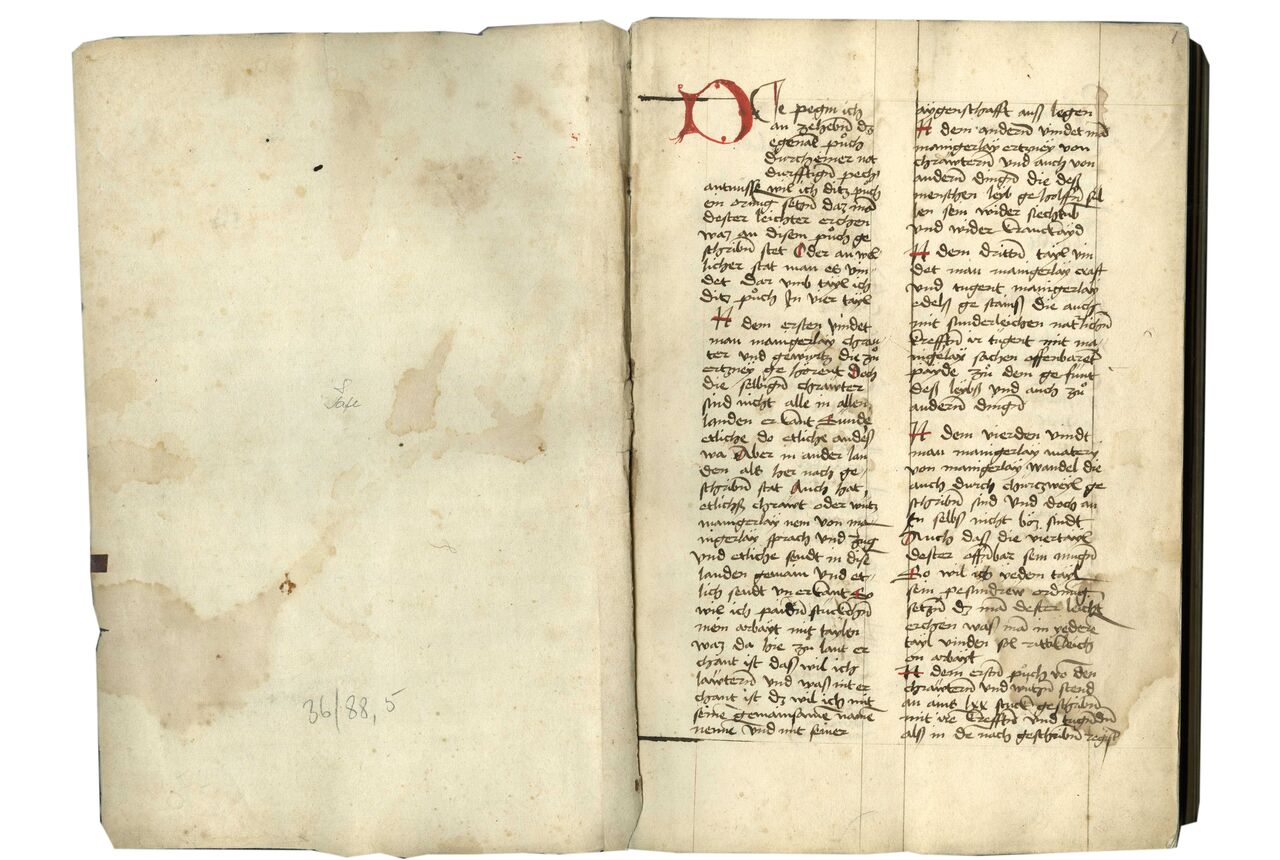 36/88,5
1
Die pegin ich
an zehebn dz
egenāt půch
durch einer not
durfftign pech
antnisse wil ich ditz půch
ein ornug setzn daz mā
dester leichter erchen
waz an disem půch ge
schribn stet Oder an wel
licher stat man es vin
det Dar vmb tayl ich
ditz půch In vier tayl
N dem ersten vindet
man manigerlay chraw
ter vnd gewurtz die zů
ertzney ge hörent Doch
die selbign chrawter
sind nicht alle in allen
landen er kant Sunde
etliche do etliche anders
wa Aber in ander lan
den als her nach ge
schribn stat Auch hat
etlichß chrawt oder wurtz
manigerlay nem von ma
nigerlay sprach vnd zug
vnd etliche sendt in dise
landen gemain vnd et
lich sendt vn erkant So
wil ich paidn stuckhn
mein arbayt mit taylen
waz da hie zu lant er
chant ist daß wil ich
lawtern vnd waß nit er
chant ist dz wil ich mit
seine gemainsame name
nenne vnd mit seiner
aygenschafft auß legen
N dem andern vindet mā
manigerlay ertzney von
chrawtern vnd auch von
andern dingn die deß
menschen leyb ge holffn sul
len sein wider siechtub
vnd wider kranckayd
N dem drittn tayl vin
det man manigerlay craft
vnd tugent manigerlay
edelß ge stainß die auch
mit sunderleichen natlichn
krefftn ir tugent mit ma
nigelay sachen offenbaret
payde zů dem ge sunt
deß leybß vnd auch zů
andern dingn
N dem vierden vindt
man manigerlay matery
von manigerlay wandel die
auch durch churczweyl ge
schribn sind vnd doch an
In selbß nicht böz sindt
Auch daß die viertayl
dester offnbar sein mugn
So wil ich yedem tayl
sein pesundrew ordnung
setzn dz mā dester leicht
erchen waß mā in yedere
tayl vinden sol
on arbayt
N dem erstn půch vō den
chrawtern vnd wurtzn stend
an amt lxx stuck geschribn
mit ire krefftn vnd tugndn
alß in de nach geschribn regist